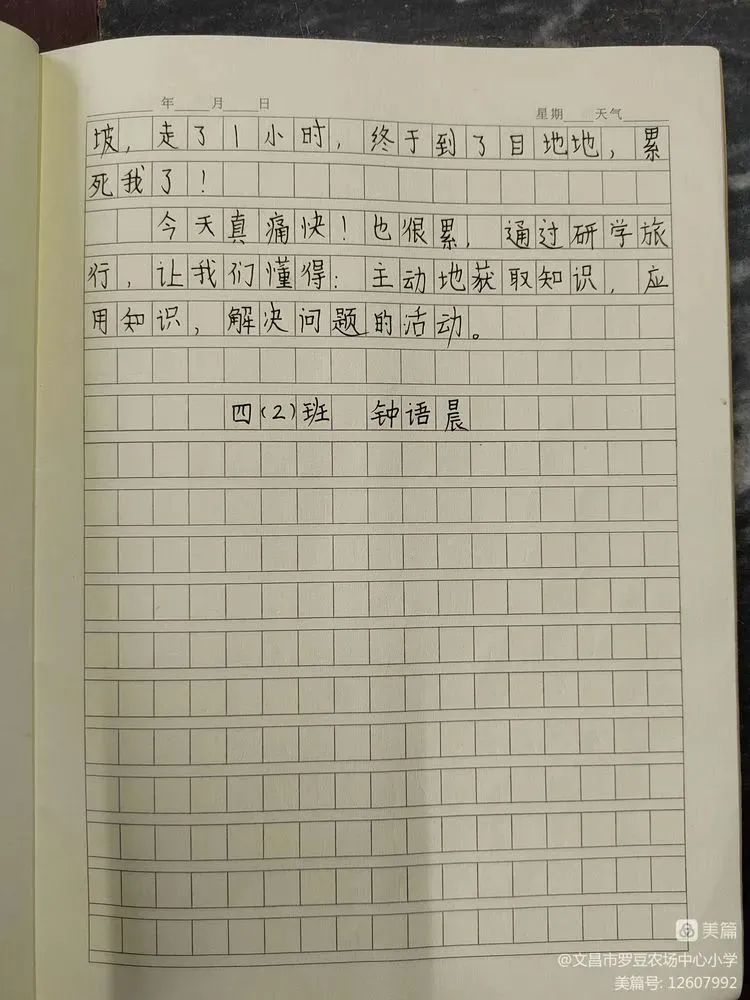 年 月 日 星期 天气
坡，走了1小时，终于到了目地地，累
死我了！
今天真痛快！也很累，通过研学旅
行，让我们懂得：主动地获取知识，应
用知识，解决问题的活动。
四(2)班 钟语晨
美篇
@文昌市罗豆农场中心小学
美篇号: 12607992